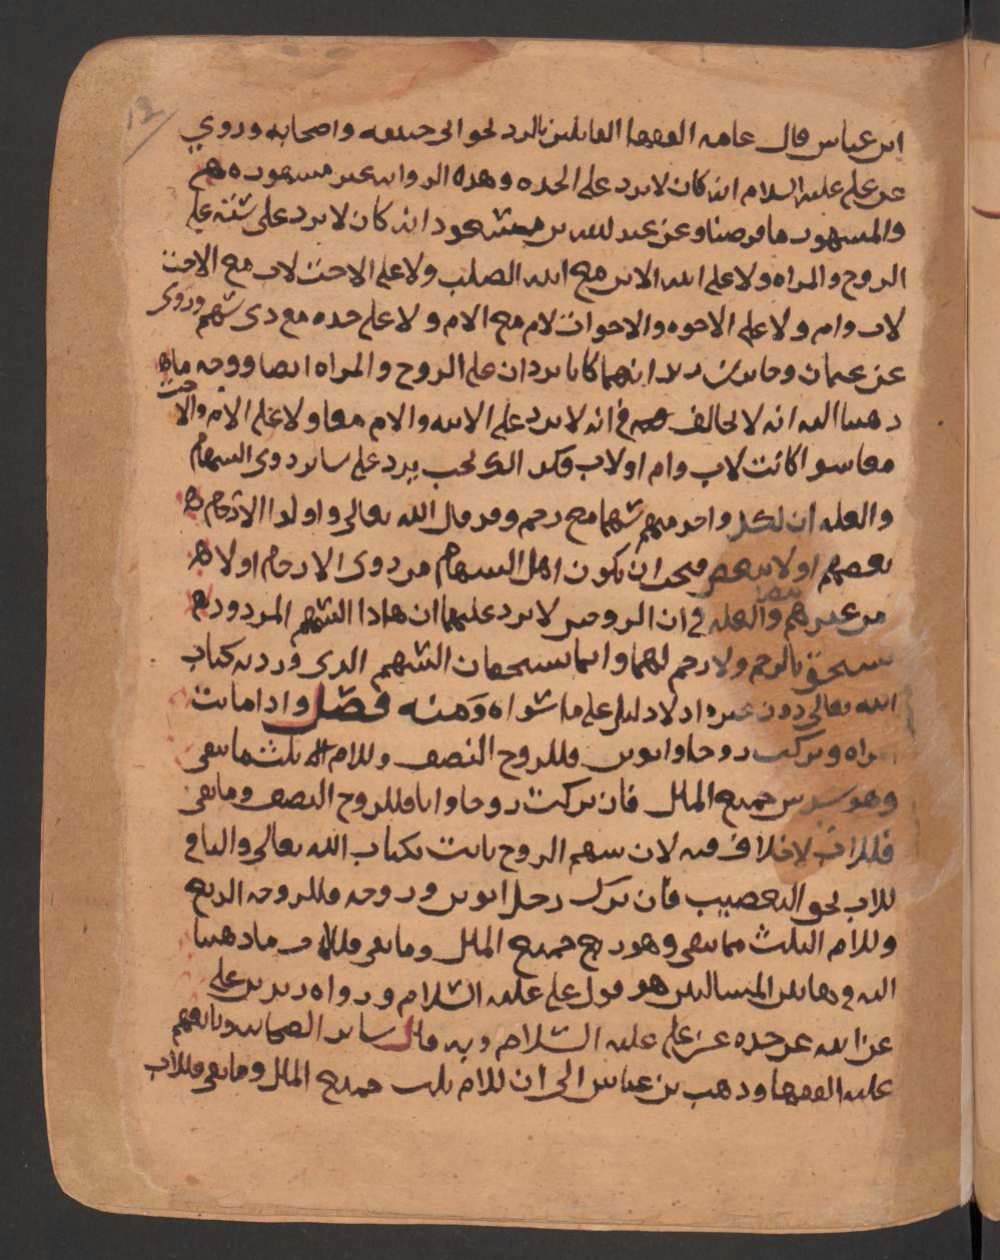 ابن عباس قال عامه الفقها القايلين بالرد نحو ابي حنيفه واصحابه وروي
عن علي عليه السلام انه كان لا يرد على الجده وهذه الروايه غير مشهوره
والمشهور ما قدمنا وعن عبد الله بن مسعود انه كان لا يرد على سته على
الزوج والمراه ولا على ابنه الابن مع ابنه الصلب ولا على الاخت لاب مع الاخت
لاب وام ولا على الاخوه والاخوات لام مع الام ولا على جده مع ذي سهم وروى
عن عثمان وجابر بن زيد انهما كانا يردان على الزوج والمراه ايضا ووجه ما
ذهبنا اليه انه لا نخالف في انه لا يرد على الابنه والام معا ولا على الام والاخت
معا سوا كانت لاب وام او لاب فكذلك يجب يرد على ساير ذوي السهام
والعله ان لكل واحد منهم سهما مع رحم وقد قال الله تعالى واولوا الارحام
بعضهم اولا ببعض فيجب ان يكون اهل السهام من ذوي الارحام اولا
من غيرهم والعله في ان الزوجين لا يرد عليهما ان هاذا السهم المردود
يستحق بالرحم ولا رحم لهما وانما يستحقان السهم الذي ورد به كتاب
الله تعالى دون غيره اذ لا دليل على ما سواه ومنه فصل واذا ماتت
امراه وتركت زوجا وابوين فللزوج النصف وللام ثلث ما بقي
وهو سدس جميع المال فان تركت زوجا وابا فللزوج النصف وما بقي
فللاب لا خلاف فيه لان سهم الزوج ثابت بكتاب الله تعالى والباقي
للاب بحق التعصيب فان ترك رجل ابوين وزوجه فللزوجه الربع
وللام الثلث مما بقي وهو ربع جميع المال وما بقي فللاب ما ذهبنا
اليه في هاتين المسالتين هو قول علي عليه السلام ورواه زيد بن علي
عن ابيه عن جده عن علي عليه السلام وبه قال ساير الصحابه وتابعهم
عليه الفقها وذهب بن عباس الى ان للام ثلث جميع المال وما بقي فللاب